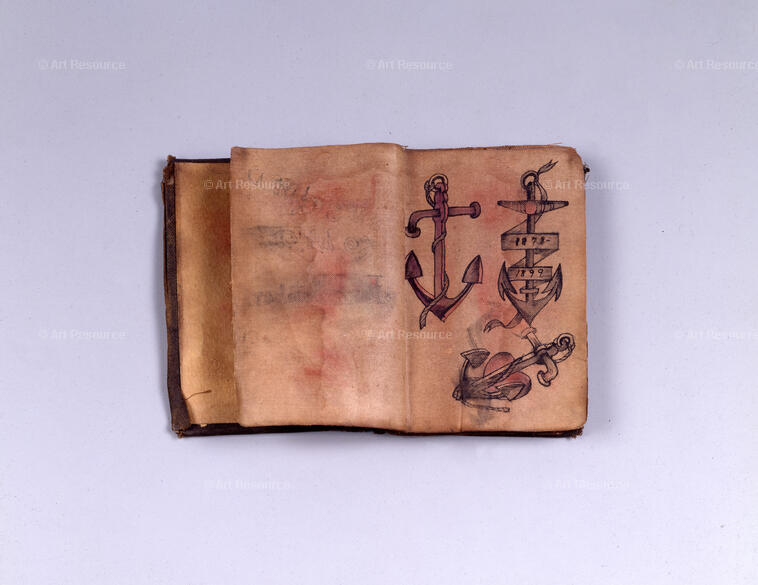 © Art Resource © Art Resource © Art Resource
© Art Resource © Art Resource
1875-
1899
© Art Resource © Art Resource © Art Resource
© Art Resource © Art Resource